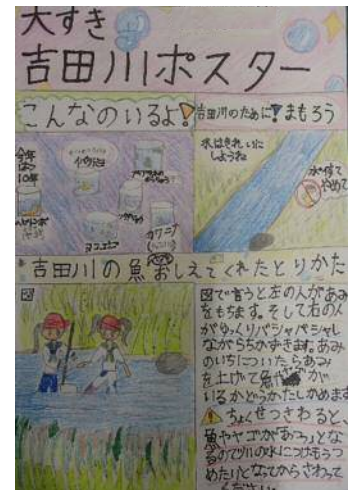 大すき
吉田川ポスター
こんなのいるよ!
吉田川のために!まもろう
今年
は
10年
水はきれいに
しようね
水すて
やめて
カワニナ
吉田川の魚おしえてくれたとりかた
図
図で言うと左の人があみ
をもちます。そして右の人
がゆっくりバシャバシャし
ながらちかずきます。あみ
のいちについたらあみ
を上げて魚やヤゴが
いるかどうかたしかめます
ちょくせつさわると、
魚やヤゴが「あつっ」とな
るので川の水に手をつけもうつ
めたいとなってからさわって